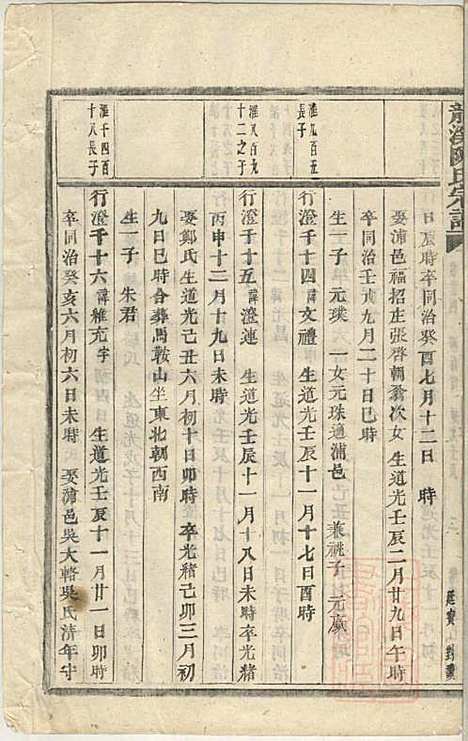 龍溪陳氏宗譜
日辰時卒同治癸酉七月十二日　時
娶浦邑福招庄張啓朝翁次女　生道光壬辰二月廿九日午時
卒同治壬戌九月二十日巳時
生一子　元璞　一女元珠適浦邑　兼祧子　元廣
淮九百五
長子
行澄千十四諱文禮　生道光壬辰十一月十七日酉時
淮八百九
十二之子
行澄千十五諱澄連　生道光壬辰十一月十八日未時卒光緒
丙申十二月十九日未時
娶鄭氏生道光己丑六月初十日卯時　卒光緒己卯三月初
九日巳時合葬馬鞍山坐東北朝西南
生一子　朱君
淮千四百
十八長子
行澄千十六諱維充字　生道光壬辰十一月廿一日卯時
卒同治癸亥六月初六日未時　娶浦邑吳大輅吳氏清年守